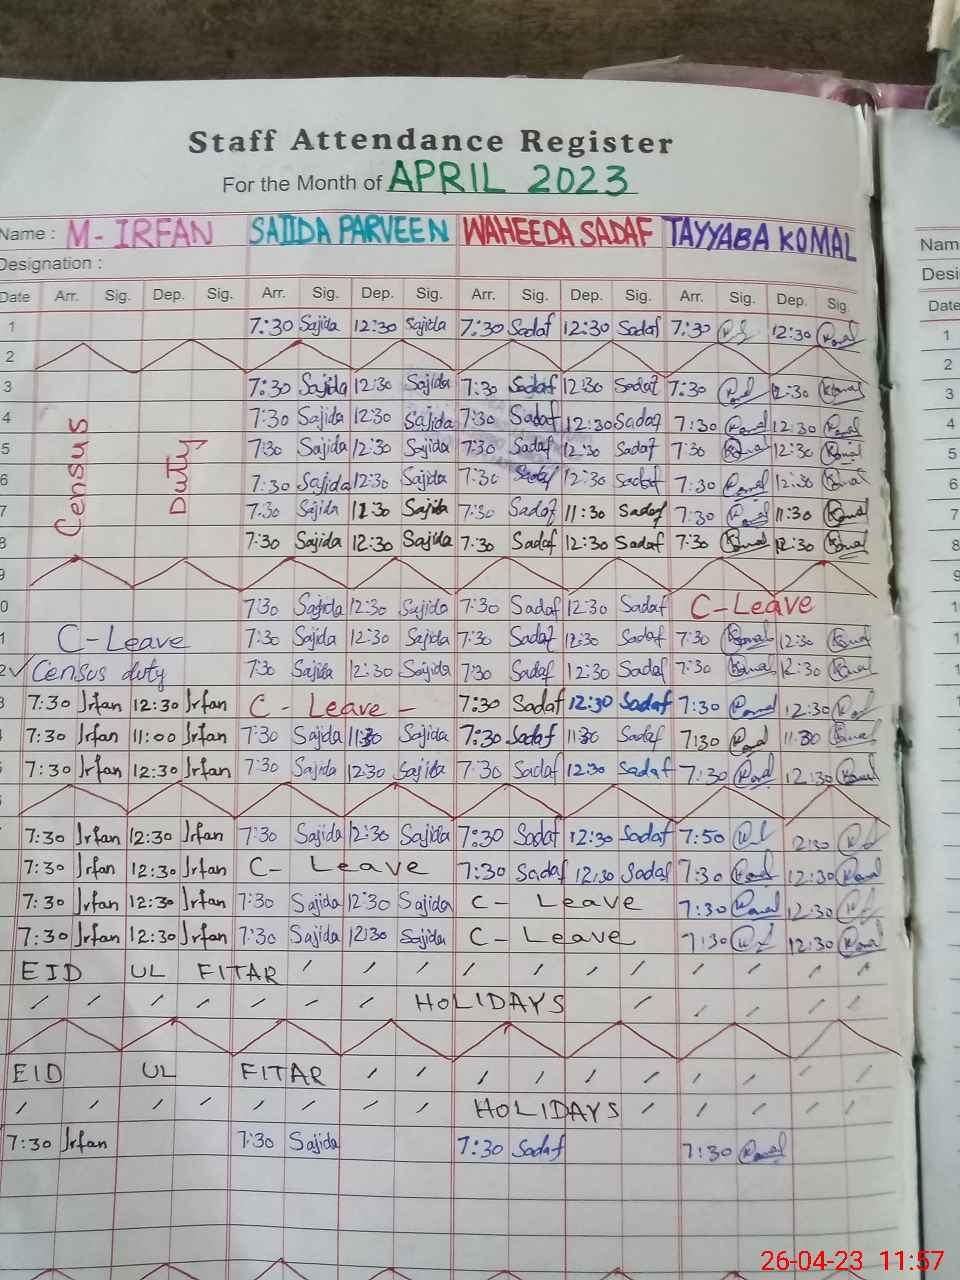 Staff Attendance Register
For the Month of APRIL 2023
Name : M- IRFAN SAJIDA PARVEEN WAHEEDA SADAF TAYYABA KOMAL Nam
Designation : Desi
Date Arr. Sig. Dep. Sig. Arr. Sig. Dep. Sig. Arr. Sig. Dep. Sig. Arr. Sig. Dep. Sig. Date
1 7:30 Sajida 12:30 Sajida 7:30 Sadaf 12:30 Sadaf 7:30 12:30 Komal 1
2 2
3 7:30 Sajida 12:30 Sajida 7:30 Sadaf 12:30 Sadaf 7:30 12:30 Komal 3
4 7:30 Sajida 12:30 Sajida 7:30 Sadaf 12:30 Sadaf 7:30 Komal 12:30 Komal 4
5 Census Duty 7:30 Sajida 12:30 Sajida 7:30 Sadaf 12:30 Sadaf 7:30 Komal 12:30 Komal 5
6 7:30 Sajida 12:30 Sajida 7:30 Sadaf 12:30 Sadaf 7:30 Komal 12:30 Komal 6
7 7:30 Sajida 11:30 Sajida 7:30 Sadaf 11:30 Sadaf 7:30 11:30 Komal 7
8 7:30 Sajida 12:30 Sajida 7:30 Sadaf 12:30 Sadaf 7:30 Komal 12:30 Komal 8
9 9
0 7:30 Sajida 12:30 Sajida 7:30 Sadaf 12:30 Sadaf C-Leave 1
1 C-Leave 7:30 Sajida 12:30 Sajida 7:30 Sadaf 12:30 Sadaf 7:30 Komal 12:30 Komal 1
2 Census duty 7:30 Sajida 12:30 Sajida 7:30 Sadaf 12:30 Sadaf 7:30 Komal 12:30 Komal 1
3 7:30 Irfan 12:30 Irfan C - Leave - 7:30 Sadaf 12:30 Sadaf 7:30 Komal 12:30
7:30 Irfan 11:00 Irfan 7:30 Sajida 11:30 Sajida 7:30 Sadaf 11:30 Sadaf 7:30 Komal 11:30 Komal
7:30 Irfan 12:30 Irfan 7:30 Sajida 12:30 Sajida 7:30 Sadaf 12:30 Sadaf 7:30 Komal 12:30 Komal
7:30 Irfan 12:30 Irfan 7:30 Sajida 12:30 Sajida 7:30 Sadaf 12:30 Sadaf 7:50 12:30
7:30 Irfan 12:30 Irfan C- Leave 7:30 Sadaf 12:30 Sadaf 7:30 Komal 12:30 Komal
7:30 Irfan 12:30 Irfan 7:30 Sajida 12:30 Sajida C - Leave 7:30 Komal 12:30
7:30 Irfan 12:30 Irfan 7:30 Sajida 12:30 Sajida C - Leave 7:30 12:30 Komal
EID UL FITAR / / / / / / / / / / /
/ / / / / / / HOLIDAYS / / / /
EID UL FITAR / / / / / / / / /
/ / / / / / / / HOLIDAYS / / / /
7:30 Irfan 7:30 Sajida 7:30 Sadaf 7:30 Komal
26-04-23 11:57